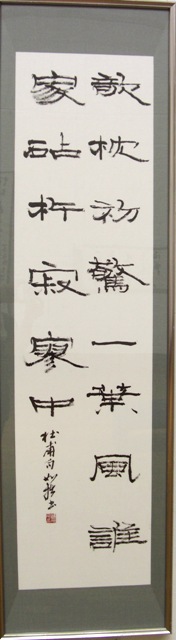 欹枕初驚一葉風誰
家砧杵寂寥中